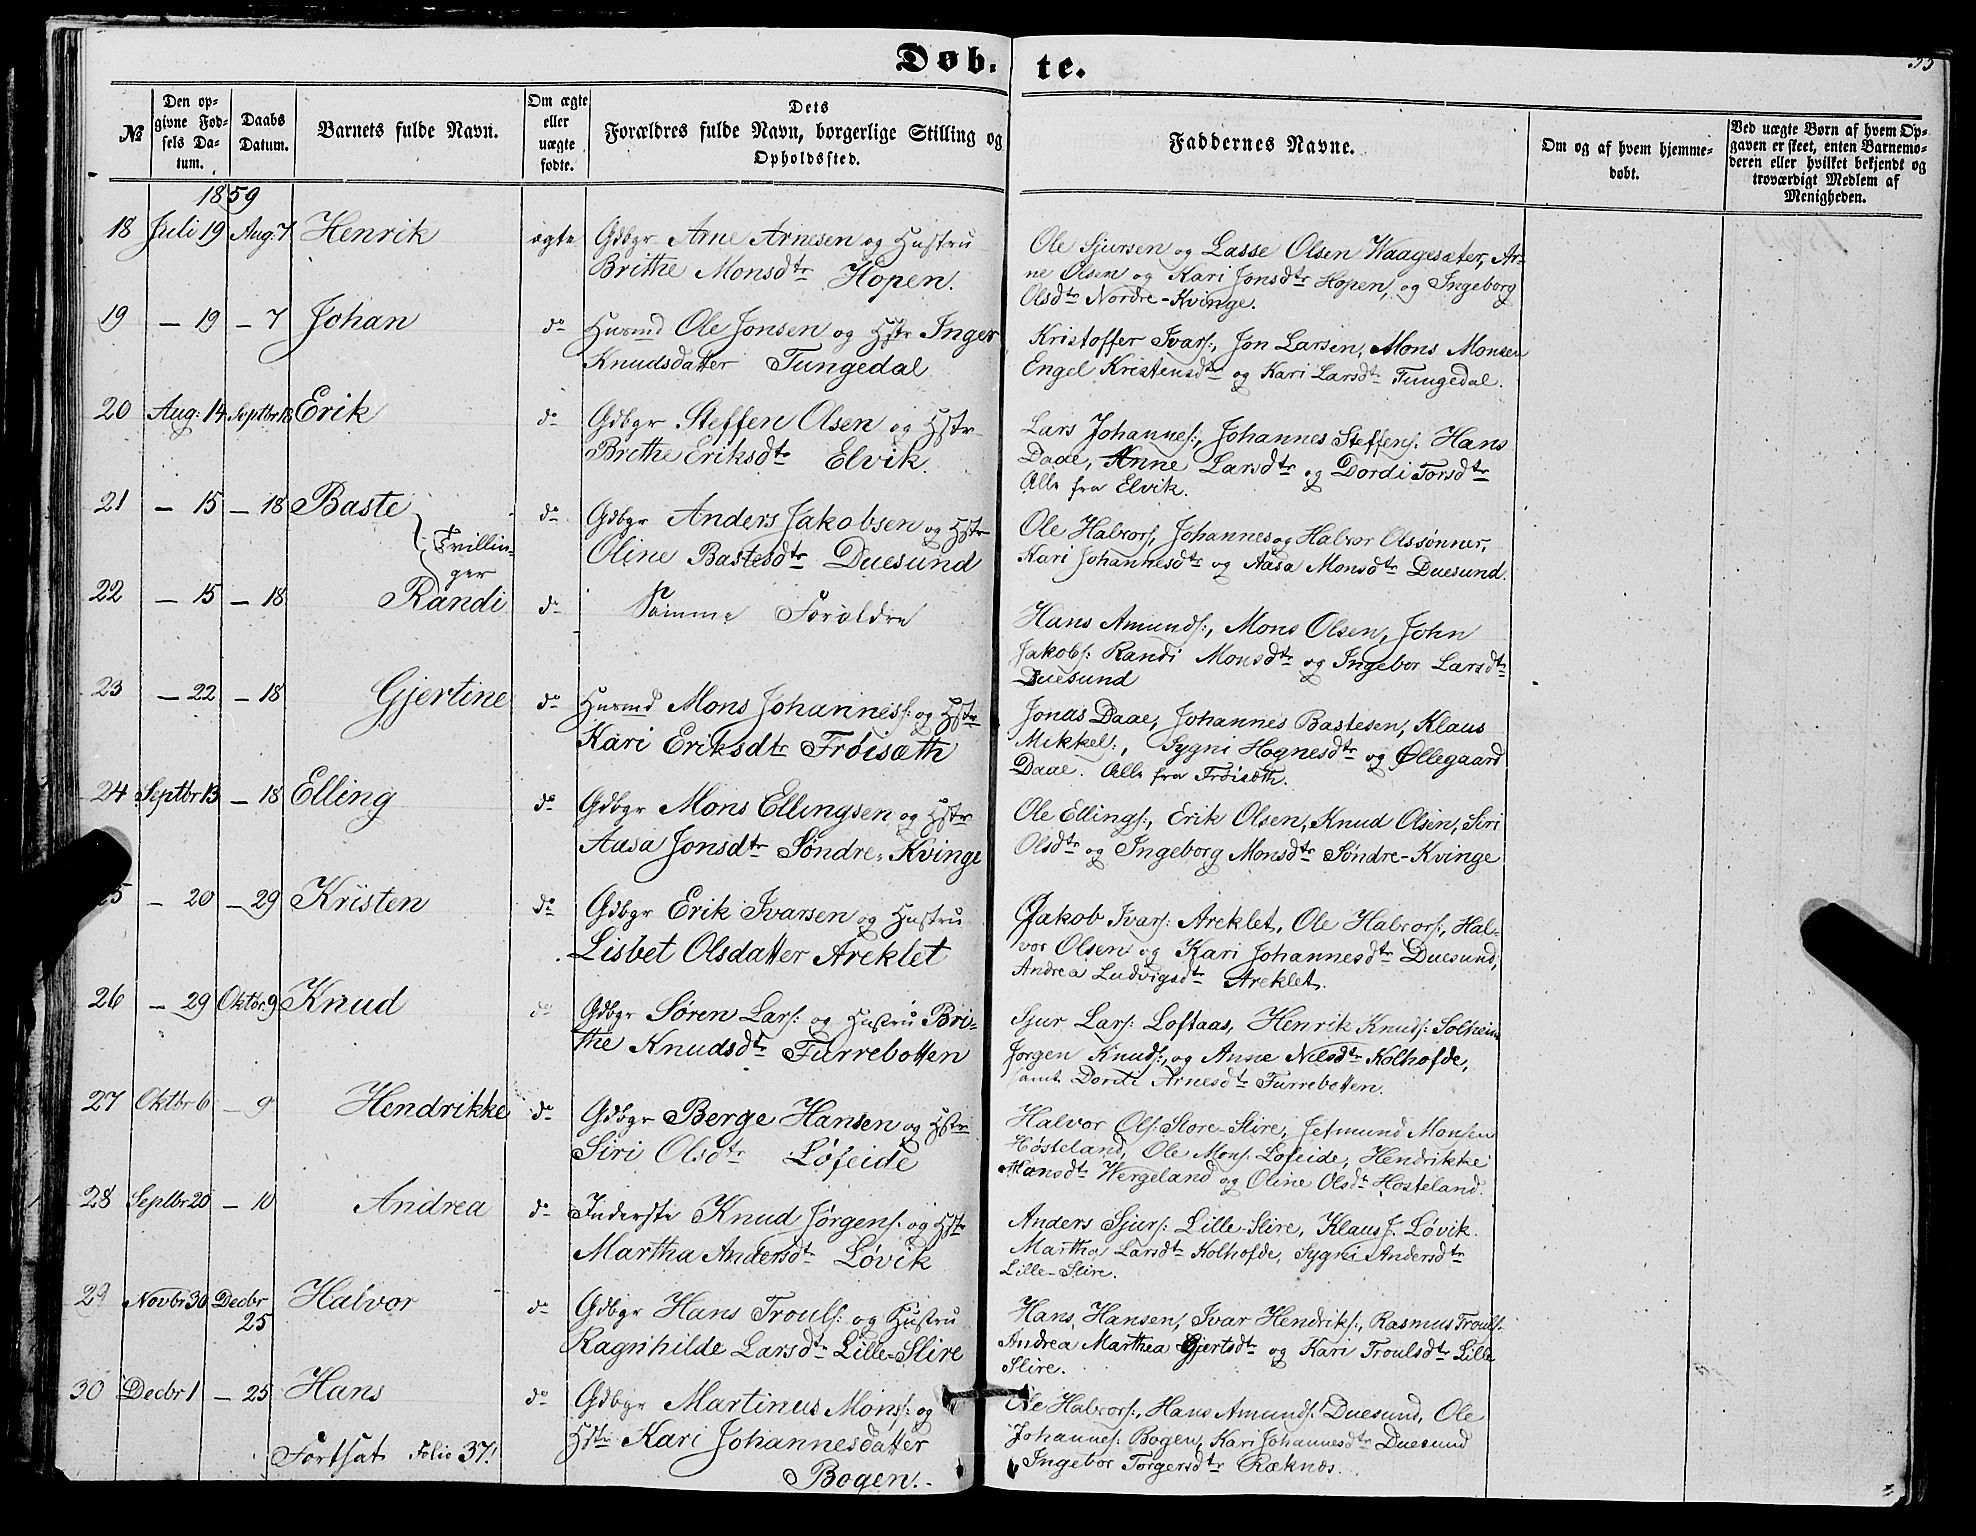 Døb-te.
35
№
Den op-
givne Fød-
sels Da-
tum.
Daabs
Datum.
Barnets fulde Navn.
Om ægte
eller
uægte
fødte.
Dets
Forældres fulde Navn, borgerlige Stilling og
Opholdssted.
Faddernes Navne.
Om og af hvem hjemme-
døbt.
Ved uægte Børn af hvem Op-
gaven er skeet, enten Barnemo-
deren eller hvilket bekjendt og
troværdigt Medlem af
Menigheden.
1859
18 Juli 19 Aug: 7 Henrik ægte Gdbgr Arne Arnesen og Hustru
Brithe Monsdtr Hopen.
Ole Sjursen og Lasse Olsen Waagesæter, Ar-
ne Olsen og Kari Jonsdtr Hopen, og Ingeborg
Olsdtr Nordre-Kvinge.
19 — 19 — 7 Johan do Husmd Ole Jonsen og Hstr Inger
Knudsdatter Tungedal
Kristoffer Ivars:, Jon Larsen, Mons Monsen
Engel Kristensdtr og Kari Larsdtr Tungedal.
20 Aug: 14 Septbr 18 Erik do Gdbgr Steffen Olsen og Hstr
Brithe Eriksdtr Elvik.
Lars Johannes:, Johannes Steffens: Hans
Daae, Anne Larsdtr og Dordi Torsdtr
Alle fra Elvik.
21 — 15 — 18 Baste do Gdbgr Anders Jakobsen og Hstr
Tvillin-
ger
Oline Bastesdtr Duesund
Ole Halvors, Johannes og Halvor Olssønner,
Kari Johannesdtr og Aasa Monsdtr Duesund.
22 — 15 — 18 Randi do Samme Forældre
Hans Amunds:, Mons Olsen, John
Jakobs: Randi Monsdtr og Ingebor Larsdtr
Duesund
23 — 22 — 18 Gjertine do Husmd Mons Johanness: og Hstr
Kari Eriksdtr Frøisæth
Jonas Daae, Johannes Bastesen, Klaus
Mikkels:, Sygni Hognesdtr og Øllegaard
Daae. Alle fra Frøisæth.
24 Septbr 13 — 18 Elling do Gdbgr Mons Ellingsen og Hstr
Aasa Jonsdtr Søndre-Kvinge
Ole Ellings:, Erik Olsen, Knud Olsen, Siri
Olsdtr og Ingeborg Monsdtr Søndre-Kvinge
25 — 20 — 29 Kristen do Gdbgr Erik Ivarsen og Hustru
Lisbet Olsdatter Areklet
Jakob Ivars: Areklet, Ole Halvors:, Hal-
vor Olsen og Kari Johannesdtr Duesund,
Andrea Ludvigsdtr Areklet.
26 — 29 Oktbr: 9 Knud do Gdbgr Søren Lars: og Hustru Bri-
the Knudsdtr Furrebotten
Sjur Lars: Loftaas, Henrik Knuds: Solheim
Jørgen Knuds:, og Anne Nilsdtr Kolhofde,
samt Dordi Arnesdtr Furrebotten.
27 Oktbr 6 — 9 Hendrikke do Gdbgr Berge Hansen og Hstr
Siri Olsdtr Løfeide
Halvor Ols: Store-Slire, Jetmund Monsen
Høsteland, Ole Mons: Løfeide, Hendrikke
Mansdtr Wergeland og Oline Olsdtr Hosteland.
28 Septbr 20 — 10 Andrea do Inderste Knud Jørgens: og Hstr
Martha Andersdtr Løvik
Anders Sjurs: Lille-Slire, Klaus J. Løvik.
Martha Larsdtr Kolhofde, Sygni Andersdtr
Lille-Slire.
29 Novbr 30 Decbr Halvor do Gdbgr Hans Trouls: og Hustru
25
Ragnhilde Larsdtr Lille-Slire
Hans Hansen, Ivar Hendriks:, Rasmus Trouls-
Andrea Marthea Gjertsdtr og Kari Troulsdtr Lille
Slire.
30 Decbr 1 — 25 Hans do Gdbgr Martinus Mons: og
Hstr Kari Johannesdatter
Bogen.-
Ole Halvors:, Hans Amunds: Duesund, Ole
Johannes: Bogen, Kari Johannesdtr Duesund
Ingebor Torgersdtr Ræknæs.
Fortsat Folio 37!